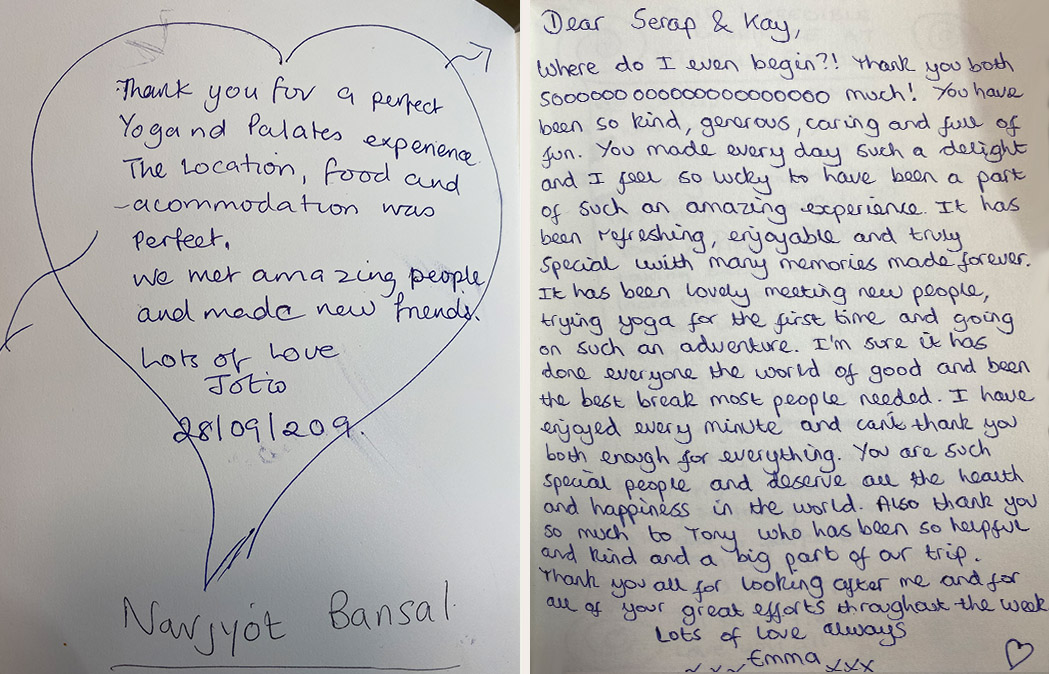 Thank you for a perfect
Yogand Palates experience
The Location, food and
acommodation was
perfect.
we met amazing people
and made new friends.
Lots of Love
Jotio
28/09/209.
Navjyot Bansal
Dear Serap & Kay,
Where do I even begin?! Thank you both
sooooooooooooooooooooo much! You have
been so kind, generous, caring and full of
fun. You made every day such a delight
and I feel so lucky to have been a part
of such an amazing experience. It has
been refreshing, enjoyable and truly
special with many memories made forever.
It has been lovely meeting new people,
trying yoga for the first time and going
on such an adventure. I'm sure it has
done everyone the world of good and been
the best break most people needed. I have
enjoyed every minute and can't thank you
both enough for everything. You are such
special people and deserve all the health
and happiness in the world. Also thank you
so much to Tony who has been so helpful
and kind and a big part of our trip.
Thank you all for looking after me and for
all of your great efforts throughout the week
Lots of love always
Emma xxx